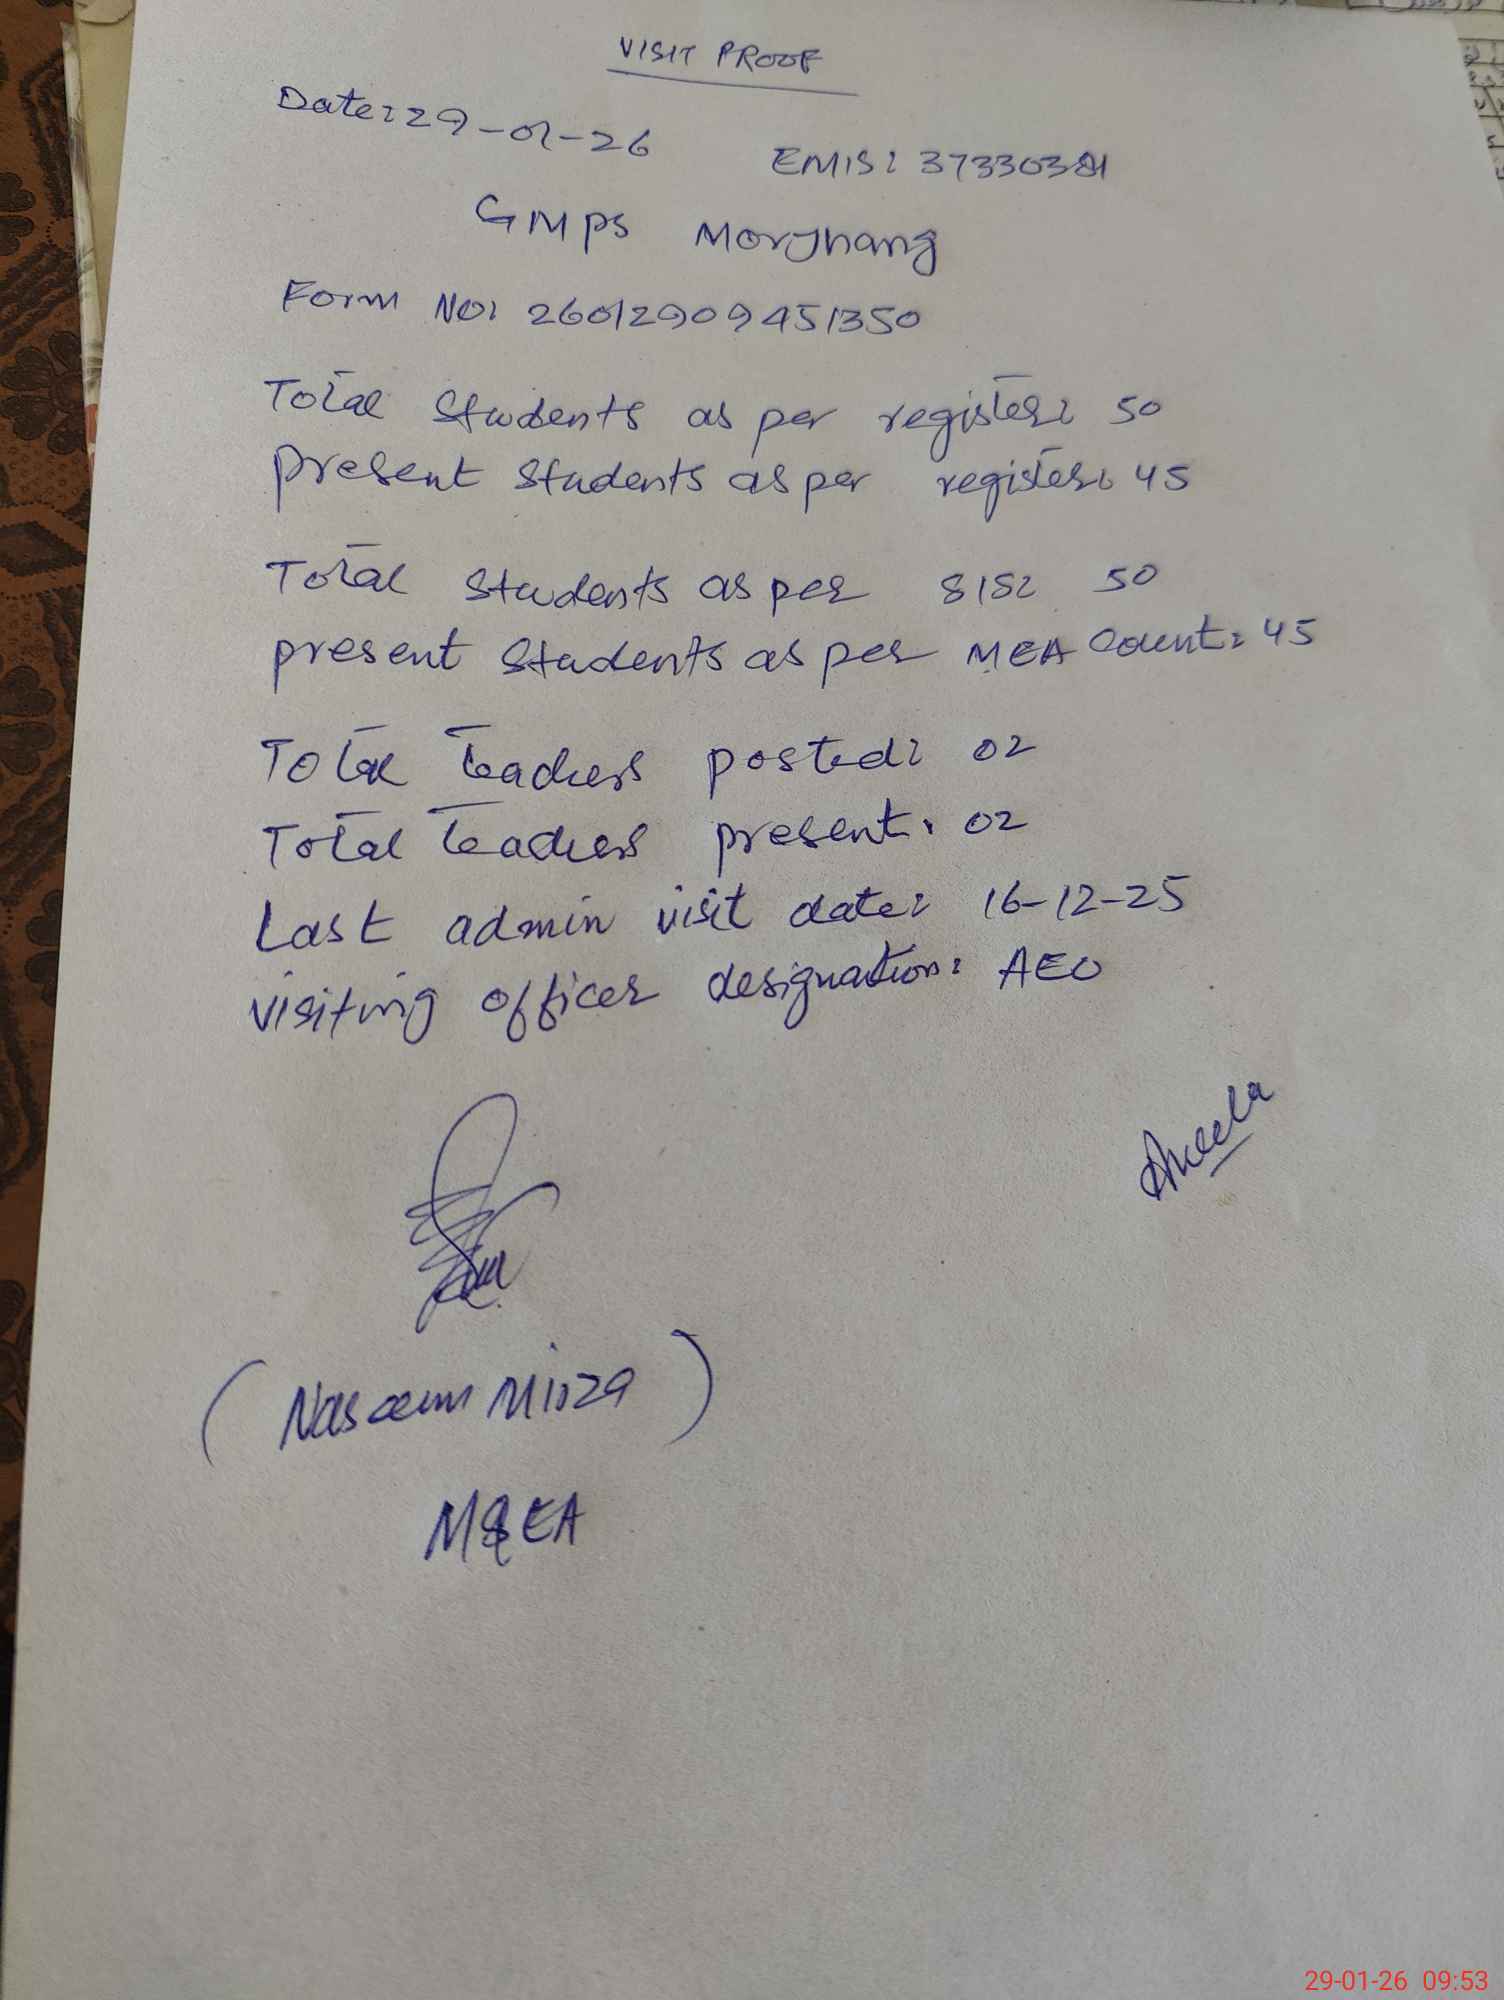 VISIT PROOF
Date: 29-01-26
EMIS: 37330381
GMPS Morjhang
Form No: 26012909451350
Total Students as per register: 50
Present Students as per register: 45
Total Students as per SIS: 50
present Students as per MEA Count: 45
Total Teachers posted: 02
Total Teachers present: 02
Last admin visit date: 16-12-25
visiting officer designation: AEO
Aneela
(Naseem Mirza)
M&EA
29-01-26 09:53